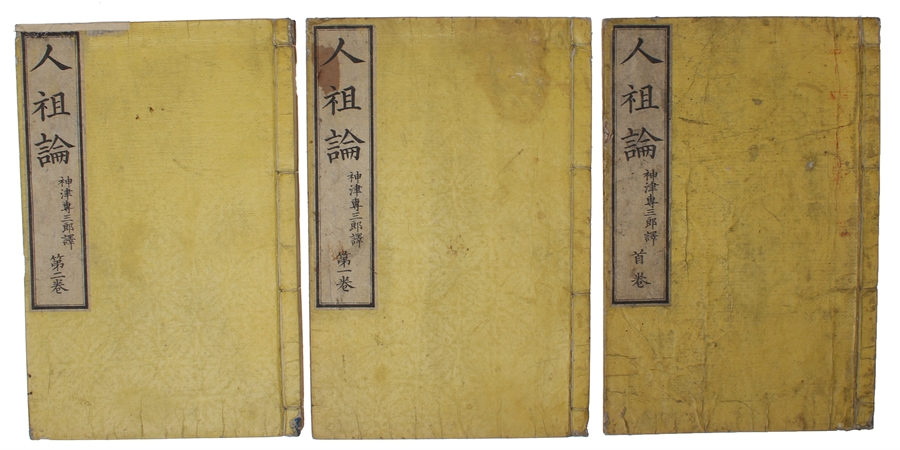 人祖論
神津專三郎譯
首卷
人祖論
神津專三郎譯
第一卷
人祖論
神津專三郎譯
第二卷